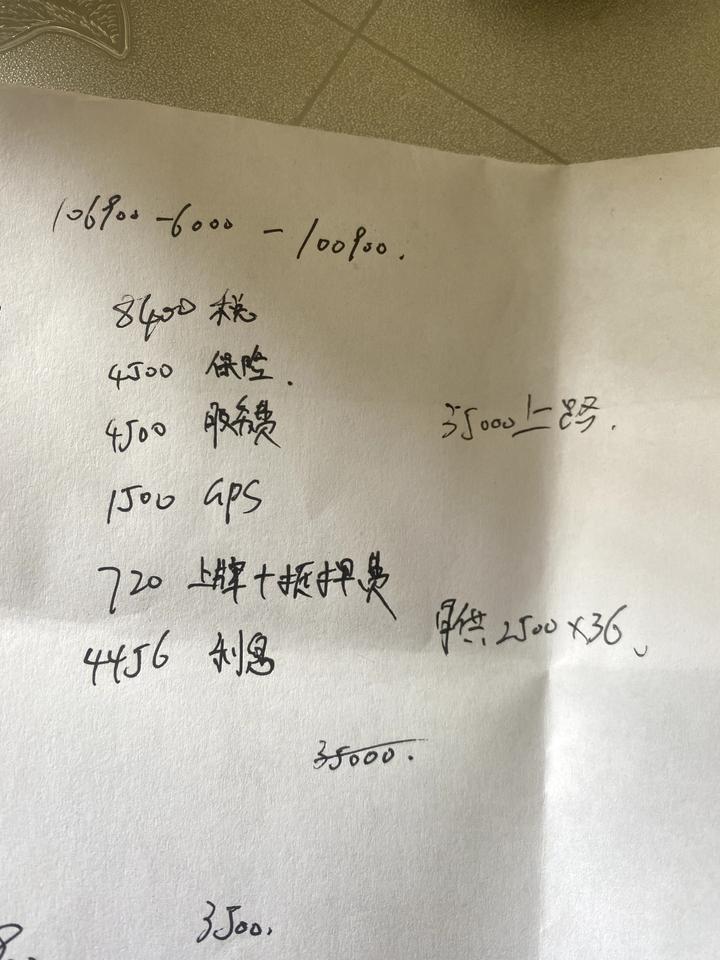 106900-6000-100900.
8400 税
4500 保险.
4500 服务费
35000上路.
1500 GPS
720 上牌+抵押费
月供2500×36、
4456 利息
35000.
3500.